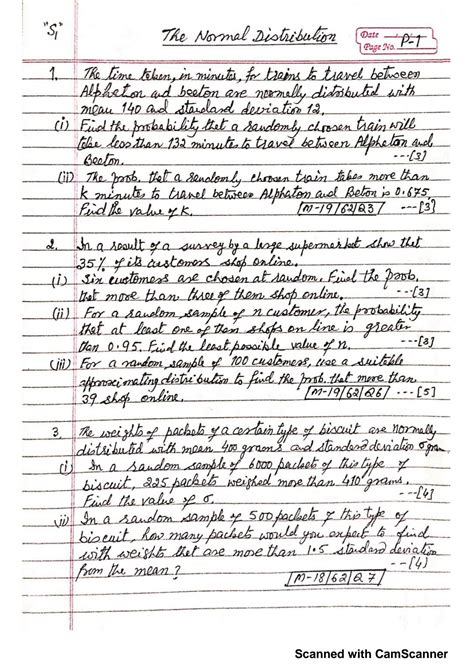 "S1 The Normal Distribution Date
Page No. P-1
1. The time taken, in minutes, for trains to travel between
Alpheton and Beeton are normally distributed with
mean 140 and standard deviation 12.
(i) Find the probability that a randomly choosen train will
take less than 132 minutes to travel between Alpheton and
Beeton. ---[3]
(ii) The prob. that a randomly choosen train takes more than
k minutes to travel between Alpheton and Beton is 0.675,
Find the value of k. M-19/62/Q3 ---[3]
2. In a result of a survey by a large supermarket show that
35% of its customers shop online.
(i) Six customers are chosen at random. Find the prob.
that more than three of them shop online. ---[3]
(ii) For a random sample of n customer, the probability
that at least one of them shops on line is greater
than 0.95. Find the least possible value of n. ---[3]
(iii) For a random sample of 100 customers, use a suitable
approximating distribution to find the prob. that more than
39 shop online. M-19/62/Q6 ---[5]
3. The weights of packets of a certain type of biscuit are normally
distributed with mean 400 grams and standard deviation σ gram.
(i) In a random sample of 6000 packets of this type of
biscuit, 225 packets weighed more than 410 grams.
Find the value of σ. ---[4]
ii) In a random sample of 500 packets of this type of
biscuit, how many packets would you expect to find
with weights that are more than 1.5 standard deviation
from the mean? ---[4]
M-18/62/Q7
Scanned with CamScanner